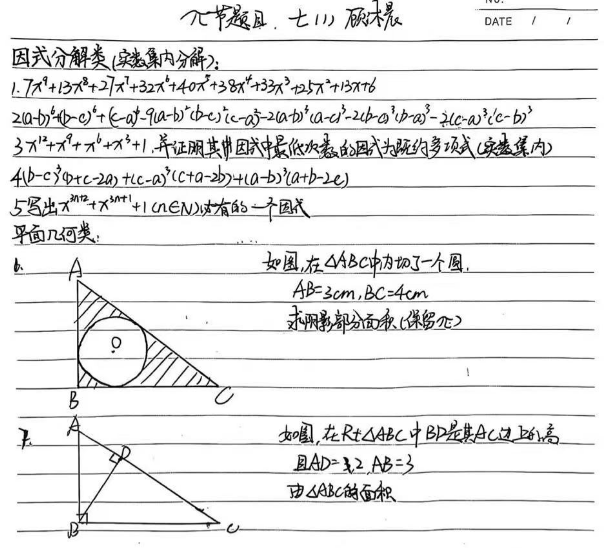 π节题目. 七(1) 顾沐晨
NO.
DATE / /
因式分解类(实数集内分解):
1. 7x⁹+13x⁸+27x⁷+32x⁶+40x⁵+38x⁴+33x³+25x²+13x+6
2(a-b)⁶+(b-c)⁶+(c-a)⁶-9(a-b)²(b-c)²(c-a)²-2(a-b)³(a-c)³-2(b-c)³(b-a)³-2(c-a)³(c-b)³
3 x¹²+x⁹+x⁶+x³+1,并证明其中因式中最低次数的因式为既约多项式(实数集内)
4(b-c)³(b+c-2a)+(c-a)³(c+a-2b)+(a-b)³(a+b-2c)
5写出x³ⁿ⁺²+x³ⁿ⁺¹+1(n∈N)必有的一个因式
平面几何类:
6.
如图,在△ABC中内切了一个圆.
AB=3cm,BC=4cm
求阴影部分面积(保留π)
A
O
B
C
7.
如图,在Rt△ABC中BD是其AC边上的高
且AD=2,AB=3
求△ABC的面积
A
D
B
C